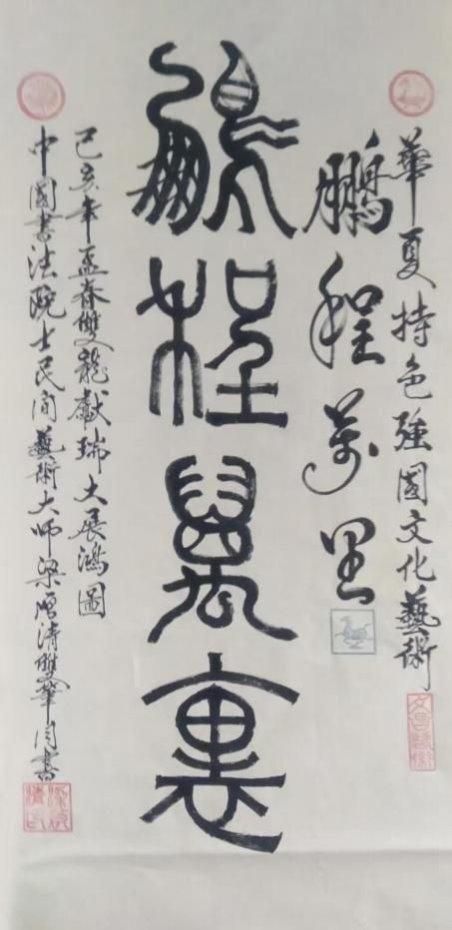 華夏特色強國文化藝術
鵬程萬里
鵬程萬裏
己亥年孟春雙龍獻瑞大展鴻圖
中國書法院士民间藝術大師梁清雙筆同書